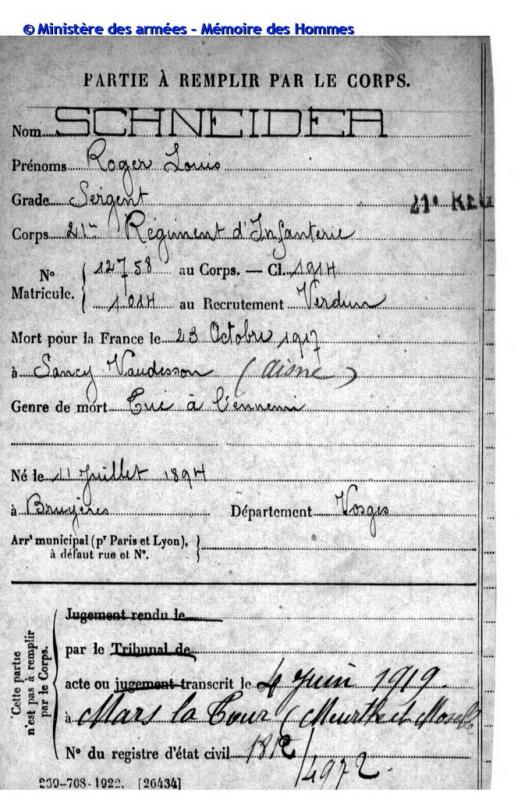 © Ministère des armées - Mémoire des Hommes
PARTIE À REMPLIR PAR LE CORPS.
Nom SCHNEIDER
Prénoms Roger Louis
Grade Sergent
21e REG
Corps 21me Régiment d'Infanterie
No Matricule. { 12758 au Corps. — Cl. 1914
1014 au Recrutement Verdun
Mort pour la France le 23 Octobre 1917
à Sancy Vaudesson (Aisne)
Genre de mort Tué à l'ennemi
Né le 11 Juillet 1894
à Bruyères Département Vosges
Arrt municipal (pr Paris et Lyon), }
à défaut rue et No.
Cette partie
n'est pas à remplir
par le Corps.
Jugement rendu le
par le Tribunal de
acte ou jugement transcrit le 4 Juin 1919
à Mars la Tour (Meurthe et Moselle
No du registre d'état civil
4972
239-708-1922. [26434]